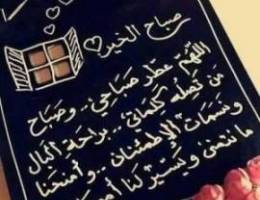 صباح الخير
اللهم عطر صباحي.. وصباح
من تصله كلماتي.. براحة البال
ونسمات الإطمئنان.. وامنحنا
ما نتمنى ويسر لنا